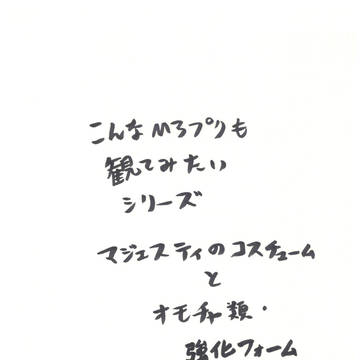 こんなMЗプリも
観てみたい
シリーズ
マジェスティのコスチューム
と
オモチャ類・
強化フォーム